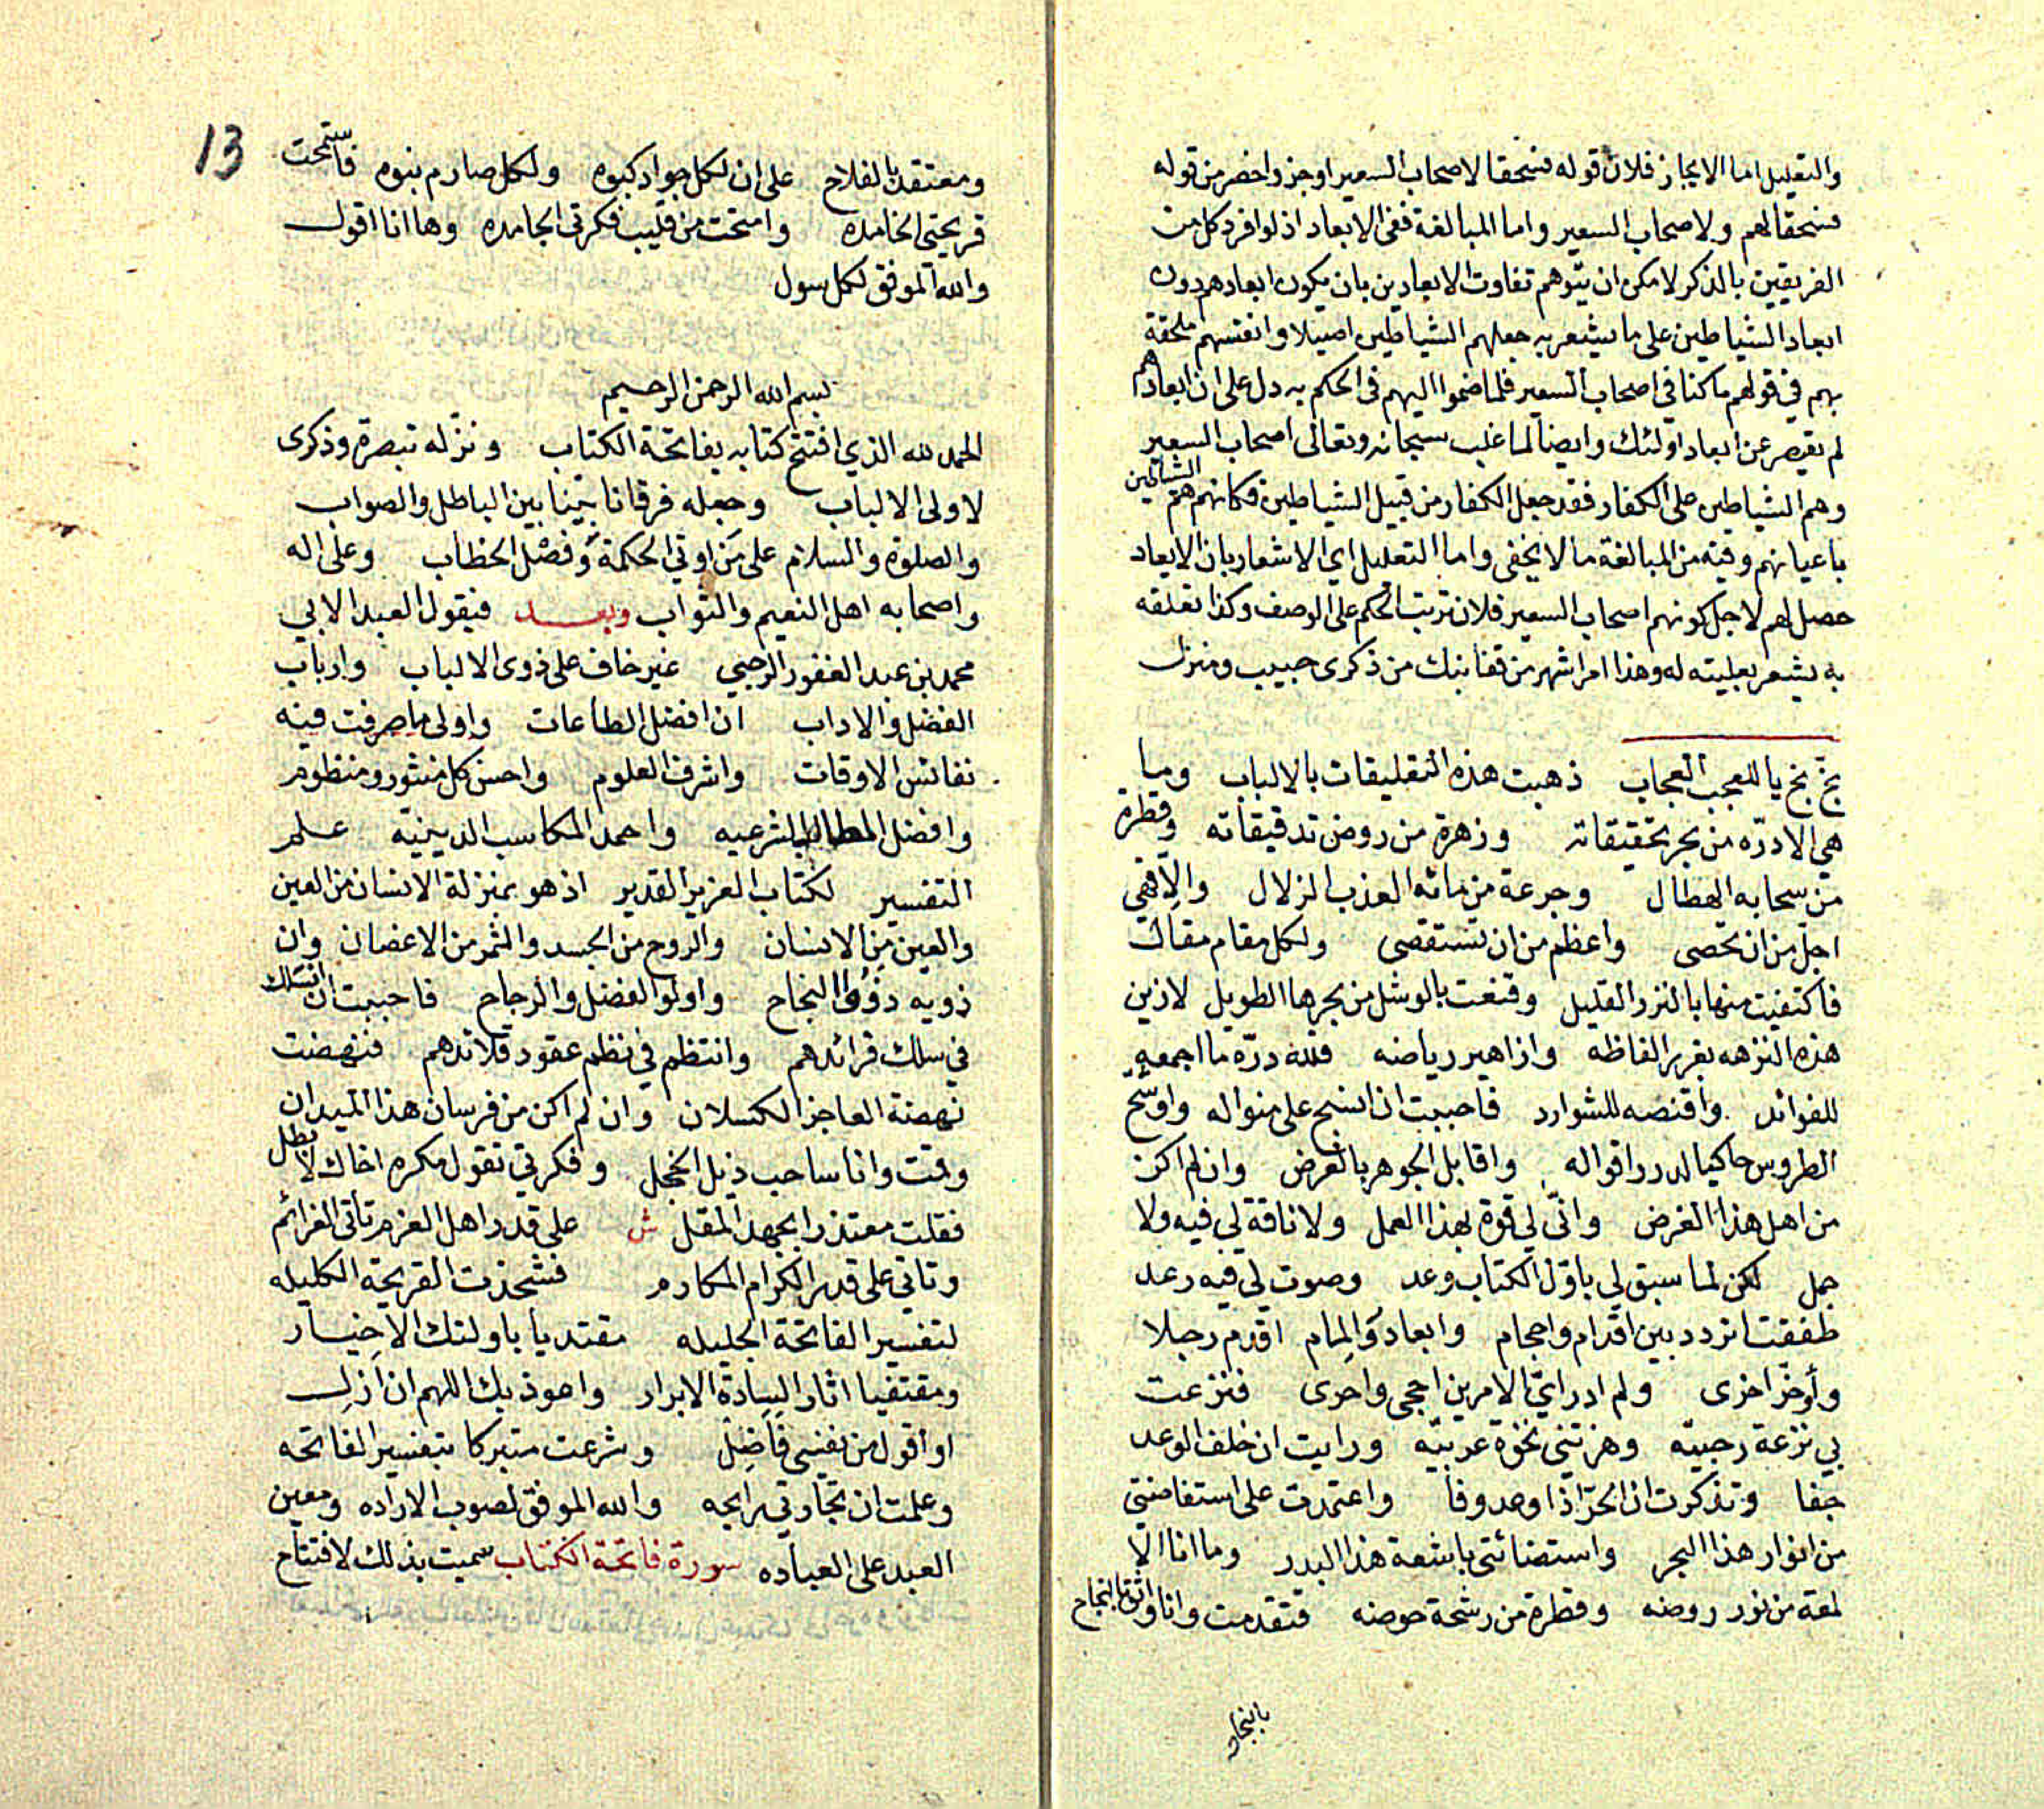 والتعليل اما الايجاز فلان قوله فسحقا لاصحاب السعير اوجز واخصر من قوله
فسحقا لهم ولاصحاب السعير واما المبالغة ففى الابعاد اذ لوافرد كل من
الفريقين بالذكر لامكن ان يتوهم تفاوت الابعادين بان يكون ابعادهم دون
ابعاد الشياطين على ما يشعر به جعلهم الشياطين اصيلا وانفسهم ملحقة
بهم في قولهم ما كنا في اصحاب السعير فلما ضموا اليهم فى الحكم به دل على ان ابعادهم
لم يقصر عن ابعاد اولئك وايضا لما غلب سبحانه وتعالى اصحاب السعير
وهم الشياطين على الكفار فقد جعل الكفار من قبيل الشياطين فكانهم هم الشياطين
باعيانهم وفيه من المبالغة مالا يخفى واما التعليل اي الاشعار بان الابعاد
حصل لهم لاجل كونهم اصحاب السعير فلان ترتب الحكم على الوصف وكذا تعلقه
به يشعر بعليته له وهذا امر اشهر من قفا نبك من ذكرى حبيب ومنزل
بخ بخ يا للعجب العجاب ذهبت هذه التعليقات بالالباب وما
هي الا درّه من بحر تحقيقاته وزهرة من روض تدقيقاته وقطرة
من سحابه الهطال وجرعة من مائه العذب الزلال والا فهي
اجلّ من ان تحصى واعظم من ان تستقصى ولكل مقام مقال
فاكتفيت منها بالنزر القليل وقنعت بالوشل من بحرها الطويل لازين
هذه النزهه بغرر الفاظه وازاهير رياضه فلله درّه ما اجمعه
للفوائد واقنصه للشوارد فاحببت ان انسج على منواله واوشّح
الطروس حاكيا لدرر اقواله واقابل الجوهر بالعرض وان لم اكن
من اهل هذا الغرض وانّى لي قوة بهذا العمل ولا ناقة لي فيه ولا
جمل لكن لما سبق لي باوّل الكتاب وعد وصوت لي فيه رعد
طفقت اتردد بين اقدام واحجام وابعاد والمام اقدم رجلا
وأوخّر اخرى ولم ادر ايّ الامرين احجى واحرى فنزعت
بي نزعة رحبيّه وهزتنى نخوة عربيّه ورايت ان خلف الوعد
جفا وتذكرت ان الحرّ اذا وعد وفا واعتمدت على استفاضتي
من انوار هذا البحر واستضائتى باشعة هذا البدر وما انا الا
لمعة من نور روضه وقطرة من رشحة حوضه فتقدمت وانا واثق بالنجاح
بالنجاح
13
ومعتقد بالفلاح على ان لكل جواد كبوه ولكل صارم نبوه فاستمحت
قريحتي الخامده وامتحت من قليب فكرتى الجامده وها انا اقول
والله الموفق لكل سول
بسم الله الرحمن الرحيم
الحمد لله الذي افتتح كتابه بفاتحة الكتاب ونزّله تبصرة وذكرى
لاولى الالباب وجعله فرقانا بيّنا بين الباطل والصواب
والصلوة والسلام على من اوتي الحكمة وفصل الخطاب وعلى اله
واصحابه اهل النعيم والثواب وبعـــد فيقول العبد الابي
محمد بن عبد الغفور الرحبي غير خاف على ذوى الالباب وارباب
الفضل والاداب ان افضل الطاعات واولى ما صرفت فيه
نفائس الاوقات واشرف العلوم واحسن كل منثور ومنظوم
وافضل المطالب الشرعيه واحمد المكاسب الدينيّه علم
التفسير لكتاب العزيز القدير اذ هو بمنزلة الانسان من العين
والعين من الانسان والروح من الجسد والثمر من الاغصان وان
ذويه ذووا النجاح واولوا الفضل والرجاح فاحببت ان انسلك
في سلك فرائدهم وانتظم في نظم عقود قلائدهم فنهضت
نهضة العاجز الكسلان وان لم اكن من فرسان هذا الميدان
وقمت وانا ساحب ذيل الخجل وفكرتي تقول مكره اخاك لا بطل
فقلت معتذرا بجهد المقل ش على قدر اهل العزم تاتى العزائم
وتاتي على قدر الكرام المكارم فشحذت القريحة الكليله
لتفسير الفاتحة الجليله مقتديا باولئك الاخيار
ومقتفيا اثار السادة الابرار واعوذ بك اللهم ان ازل
او أقول من نفسي فاضلّ وشرعت متبركا بتفسير الفاتحه
وعلمت ان تجارتي رابحه والله الموفق لصوب الاراده ومعين
العبد على العباده سورة فاتحة الكتاب سميت بذلك لافتتاح